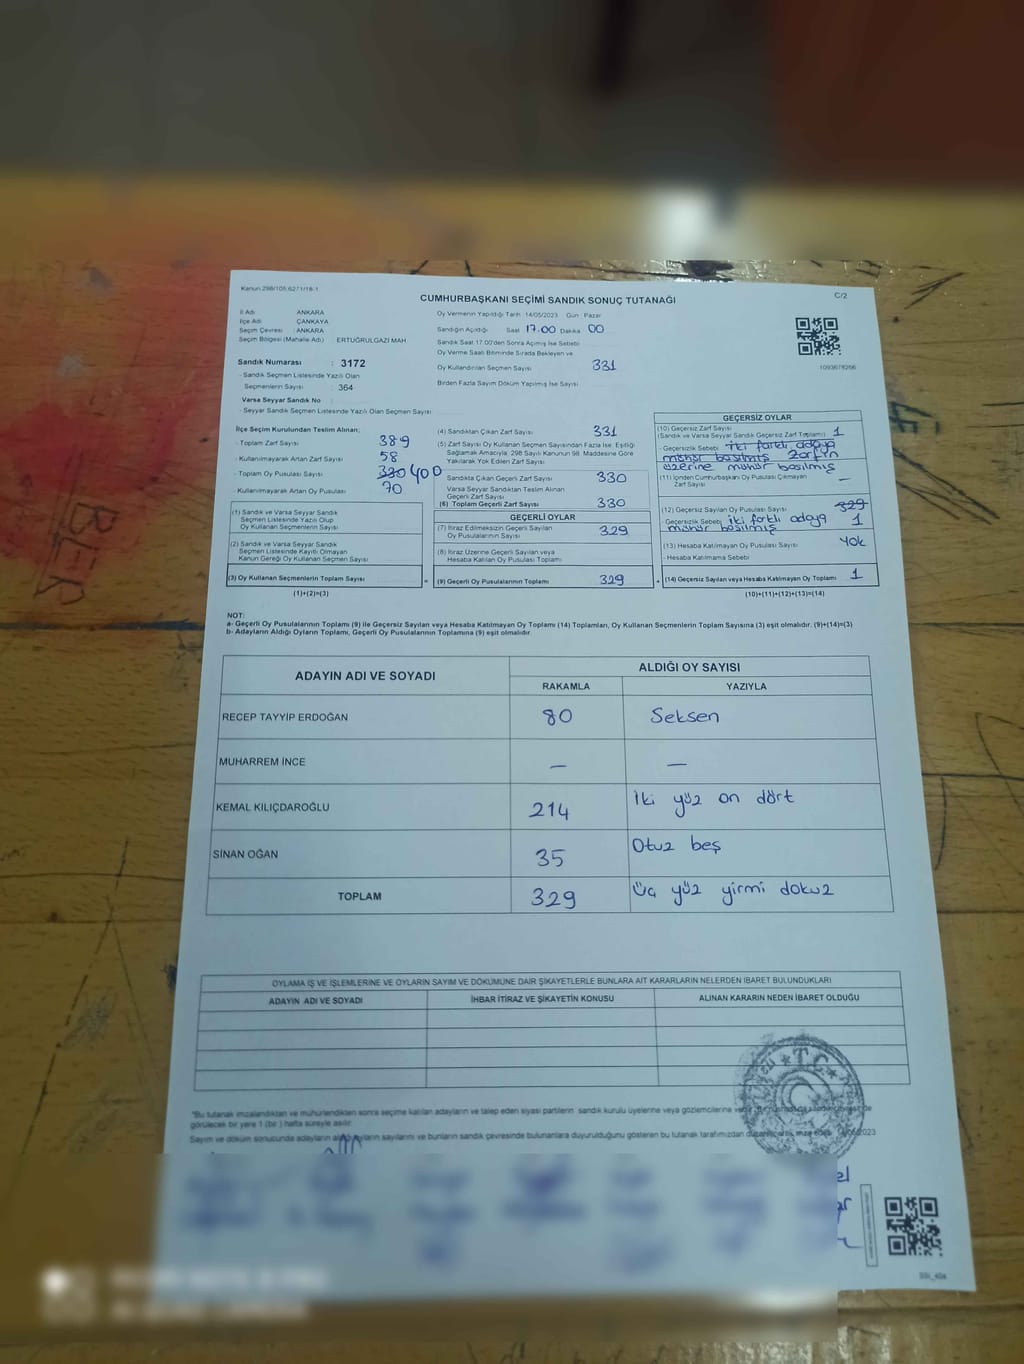 Kanun 298/105,6271/16-1
C/2
CUMHURBAŞKANI SEÇİMİ SANDIK SONUÇ TUTANAĞI
İl Adı ANKARA
İlçe Adı : ÇANKAYA
Seçim Çevresi : ANKARA
Seçim Bölgesi (Mahalle Adı) : ERTUĞRULGAZİ MAH
Sandık Numarası : 3172
- Sandık Seçmen Listesinde Yazılı Olan
Seçmenlerin Sayısı : 364
Varsa Seyyar Sandık No
- Seyyar Sandık Seçmen Listesinde Yazılı Olan Seçmen Sayısı
Oy Vermenin Yapıldığı Tarih : 14/05/2023 Gün : Pazar
Sandığın Açıldığı Saat 17.00 Dakika 00
Sandık Saat 17.00'den Sonra Açılmış İse Sebebi
Oy Verme Saati Bitiminde Sırada Bekleyen ve
Oy Kullandırılan Seçmen Sayısı 331
Birden Fazla Sayım Döküm Yapılmış İse Sayısı
1093678266
İlçe Seçim Kurulundan Teslim Alınan;
- Toplam Zarf Sayısı 389
- Kullanılmayarak Artan Zarf Sayısı 58
- Toplam Oy Pusulası Sayısı 330 400
- Kullanılmayarak Artan Oy Pusulası 70
(1) Sandık ve Varsa Seyyar Sandık
Seçmen Listesinde Yazılı Olup
Oy Kullanan Seçmenlerin Sayısı
(2) Sandık ve Varsa Seyyar Sandık
Seçmen Listesinde Kayıtlı Olmayan
Kanun Gereği Oy Kullanan Seçmen Sayısı
(3) Oy Kullanan Seçmenlerin Toplam Sayısı
(1)+(2)=(3)
(4) Sandıktan Çıkan Zarf Sayısı 331
(5) Zarf Sayısı Oy Kullanan Seçmen Sayısından Fazla İse, Eşitliği
Sağlamak Amacıyla, 298 Sayılı Kanunun 98. Maddesine Göre
Yakılarak Yok Edilen Zarf Sayısı
Sandıkta Çıkan Geçerli Zarf Sayısı 330
Varsa Seyyar Sandıktan Teslim Alınan
Geçerli Zarf Sayısı
(6) Toplam Geçerli Zarf Sayısı 330
GEÇERLİ OYLAR
(7) İtiraz Edilmeksizin Geçerli Sayılan
Oy Pusulalarının Sayısı 329
(8) İtiraz Üzerine Geçerli Sayılan veya
Hesaba Katılan Oy Pusulası Toplamı
= (9) Geçerli Oy Pusulalarının Toplamı 329
GEÇERSİZ OYLAR
(10) Geçersiz Zarf Sayısı
(Sandık ve Varsa Seyyar Sandık Geçersiz Zarf Toplamı) 1
- Geçersizlik Sebebi iki farklı adaya
mühür basılmış Zarfın
üzerine mühür basılmış
(11) İçinden Cumhurbaşkanı Oy Pusulası Çıkmayan
Zarf Sayısı —
(12) Geçersiz Sayılan Oy Pusulası Sayısı 329
- Geçersizlik Sebebi iki farklı adaya 1
mühür basılmış
(13) Hesaba Katılmayan Oy Pusulası Sayısı YOK
- Hesaba Katılmama Sebebi
+ (14) Geçersiz Sayılan veya Hesaba Katılmayan Oy Toplamı 1
(10)+(11)+(12)+(13)=(14)
NOT:
a- Geçerli Oy Pusulalarının Toplamı (9) ile Geçersiz Sayılan veya Hesaba Katılmayan Oy Toplamı (14) Toplamları, Oy Kullanan Seçmenlerin Toplam Sayısına (3) eşit olmalıdır. (9)+(14)=(3)
b- Adayların Aldığı Oyların Toplamı, Geçerli Oy Pusulalarının Toplamına (9) eşit olmalıdır.
ADAYIN ADI VE SOYADI
ALDIĞI OY SAYISI
RAKAMLA YAZIYLA
RECEP TAYYİP ERDOĞAN 80 Seksen
MUHARREM İNCE — —
KEMAL KILIÇDAROĞLU 214 İki yüz on dört
SİNAN OĞAN 35 Otuz beş
TOPLAM 329 Üç yüz yirmi dokuz
OYLAMA İŞ VE İŞLEMLERİNE VE OYLARIN SAYIM VE DÖKÜMÜNE DAİR ŞİKAYETLERLE BUNLARA AİT KARARLARIN NELERDEN İBARET BULUNDUKLARI
ADAYIN ADI VE SOYADI İHBAR İTİRAZ VE ŞİKAYETİN KONUSU ALINAN KARARIN NEDEN İBARET OLDUĞU
*Bu tutanak imzalandıktan ve mühürlendikten sonra seçime katılan adayların ve talep eden siyasi partilerin sandık kurulu üyelerine veya gözlemcilerine
görülecek bir yere 1 (bir) hafta süreyle asılır.
Sayım ve döküm sonucunda adayların aldığı oyların sayılarını ve bunların sandık çevresinde bulunanlara duyurulduğunu gösteren bu tutanak tarafımızdan
T.C.